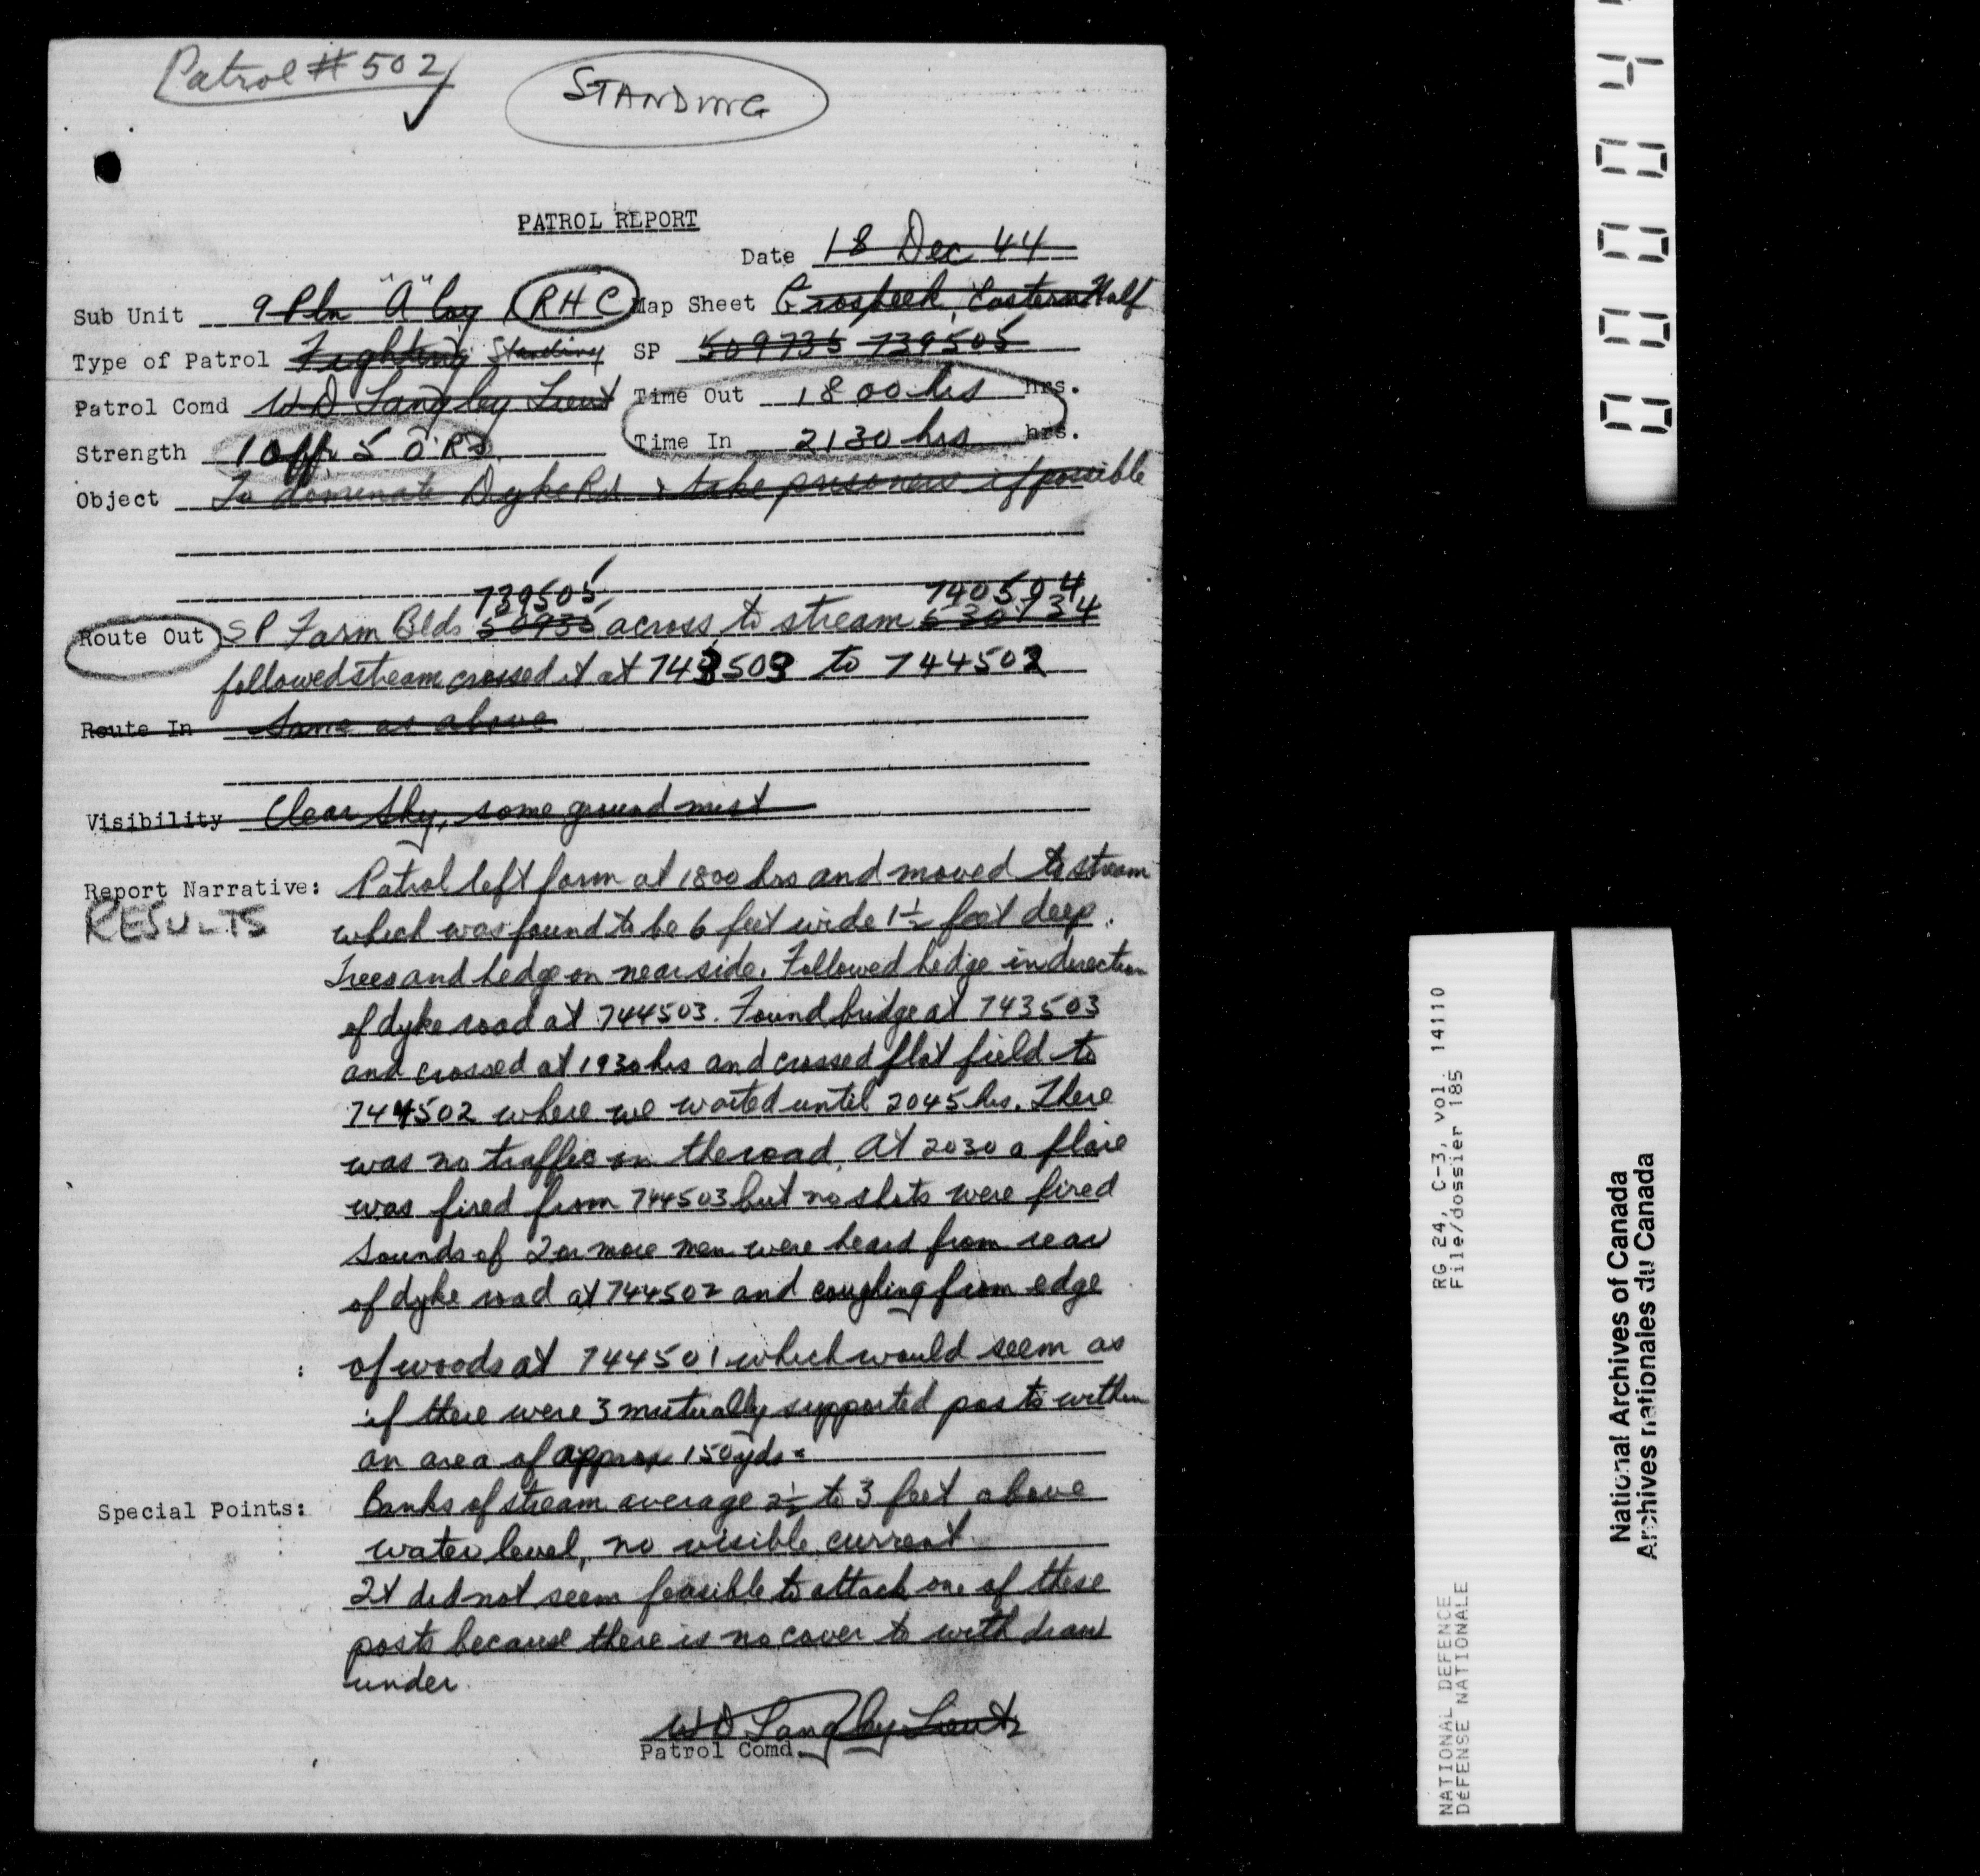 Patrol # 502
STANDING
PATROL REPORT
Date 18 Dec 44
Sub Unit 9 Pln "A" Coy RHC Map Sheet Grosbeek, Eastern Half
Type of Patrol Fighting Standing SP 509735 739505
Patrol Comd W D Langley Lieut Time Out 1800 hrs hrs.
Strength 1 Offr 5 ORs Time In 2130 hrs hrs.
Object To dominate Dyke Rd & take prisoners if possible
739505 740504
Route Out SP Farm Blds 50935 across to stream
followed stream crossed it at 743503 to 744502
Route In Same as above
Visibility Clear Sky, some ground mist
Report Narrative: Patrol left farm at 1800 hrs and moved to stream
RESULTS
which was found to be 6 feet wide 1½ feet deep.
Trees and hedge on near side. Followed hedge in direction
of dyke road at 744503. Found bridge at 743503
and crossed at 1930 hrs and crossed flat field to
744502 where we waited until 2045 hrs. There
was no traffic on the road. At 2030 a flare
was fired from 744503 but no shots were fired
Sounds of 2 or more men were heard from rear
of dyke road at 744502 and coughing from edge
of woods at 744501 which would seem as
if there were 3 mutually supported posts within
an area of approx 150 yds.
Special Points: Banks of stream average 2½ to 3 feet above
water level, no visible current
It did not seem feasible to attack one of these
posts because there is no cover to withdraw
under
W D Langley Lieut
Patrol Comd.
00004
RG 24, C-3, vol. 14110
File/dossier 185
NATIONAL DEFENCE
DÉFENSE NATIONALE
National Archives of Canada
Archives nationales du Canada